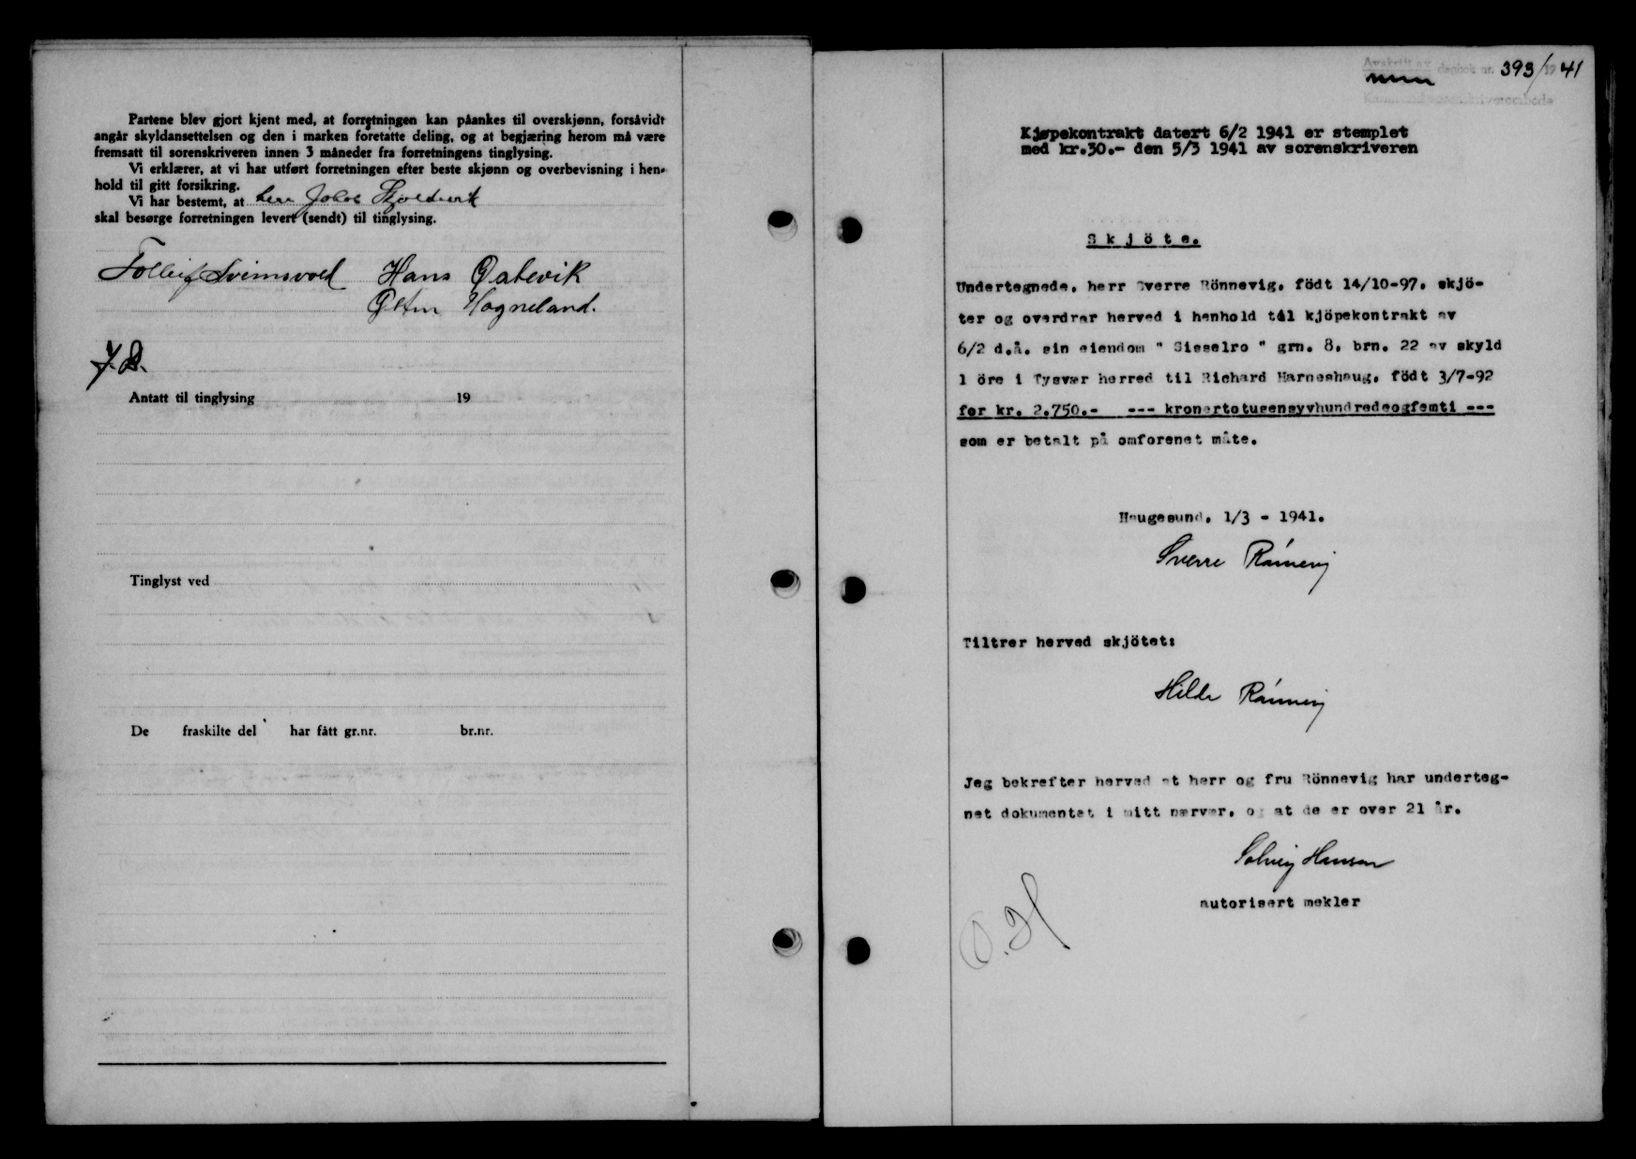 Partene blev gjort kjent med, at forretningen kan påankes til overskjønn, forsåvidt
angår skyldansettelsen og den i marken foretatte deling, og at begjæring herom må være
fremsatt til sorenskriveren innen 3 måneder fra forretningens tinglysing.
Vi erklærer, at vi har utført forretningen efter beste skjønn og overbevisning i hen-
hold til gitt forsikring.
Vi har bestemt, at herr Jakob
skal besørge forretningen levert (sendt) til tinglysing.
Hans
Hagneland.
Antatt til tinglysing 19
Tinglyst ved
De fraskilte del har fått gr.nr. br.nr.
Avskrift av dagbok nr. 393/1941
Karmsund sorenskriverembede
Kjøpekontrakt datert 6/2 1941 er stemplet
med kr.30.- den 5/3 1941 av sorenskriveren
Skjöte.
Undertegnede, herr Sverre Rönnevig, födt 14/10-97, skjö-
ter og overdrar herved i henhold til kjöpekontrakt av
6/2 d.å. sin eiendom " Sisselro " grn. 8, brn. 22 av skyld
1 öre i Tysvær herred til Richard Harneshaug, födt 3/7-92
for kr. 2.750.- --- kronertotusensyvhundredeogfemti ---
som er betalt på omforenet måte.
Haugesund, 1/3 - 1941.
Sverre Rönnevig
Tiltrer herved skjötet:
Hilda Rönnevig
Jeg bekrefter herved at herr og fru Rönnevig har underteg-
net dokumentet i mitt nærvær, og at de er over 21 år.
Solveig Hansen
autorisert mekler
O.H